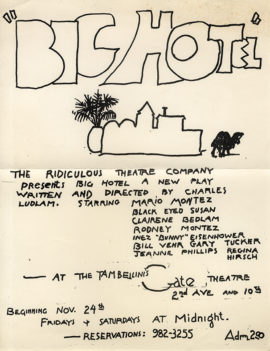 "BIG HOTEL"
THE RIDICULOUS THEATRE COMPANY
PRESENTS BIG HOTEL A NEW PLAY
WRITTEN AND DIRECTED BY CHARLES
LUDLAM. STARRING MARIO MONTEZ
BLACK EYED SUSAN
CLAIRENE BEDLAM
RODNEY MONTEZ
INEZ "BUNNY" EISENHOWER
BILL VEHR GARY TUCKER
JEANNE PHILLIPS REGINA
HIRSCH
— AT THE TAMBELLINIS Gate THEATRE
2nd AVE AND 10th
BEGINNING NOV. 24th
FRIDAYS & SATURDAYS AT MIDNIGHT.
— RESERVATIONS: 982-3255 Adm 2.50